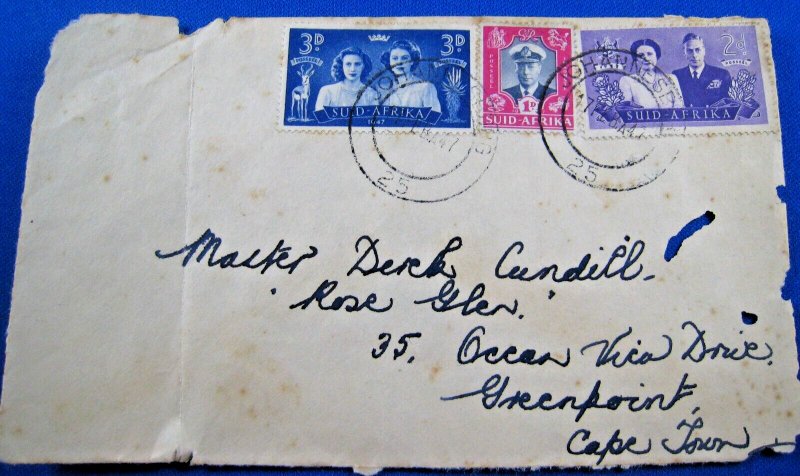 3D 3D
POSSEEL
SUID-AFRIKA
1947
POSSEEL
1D
SUID-AFRIKA
POSSEEL
2d
SUID-AFRIKA
JOHANNESB
25
25
Master Derek Cundill.
"Rose Glen."
35. Ocean View Drive.
Greenpoint,
Cape Town